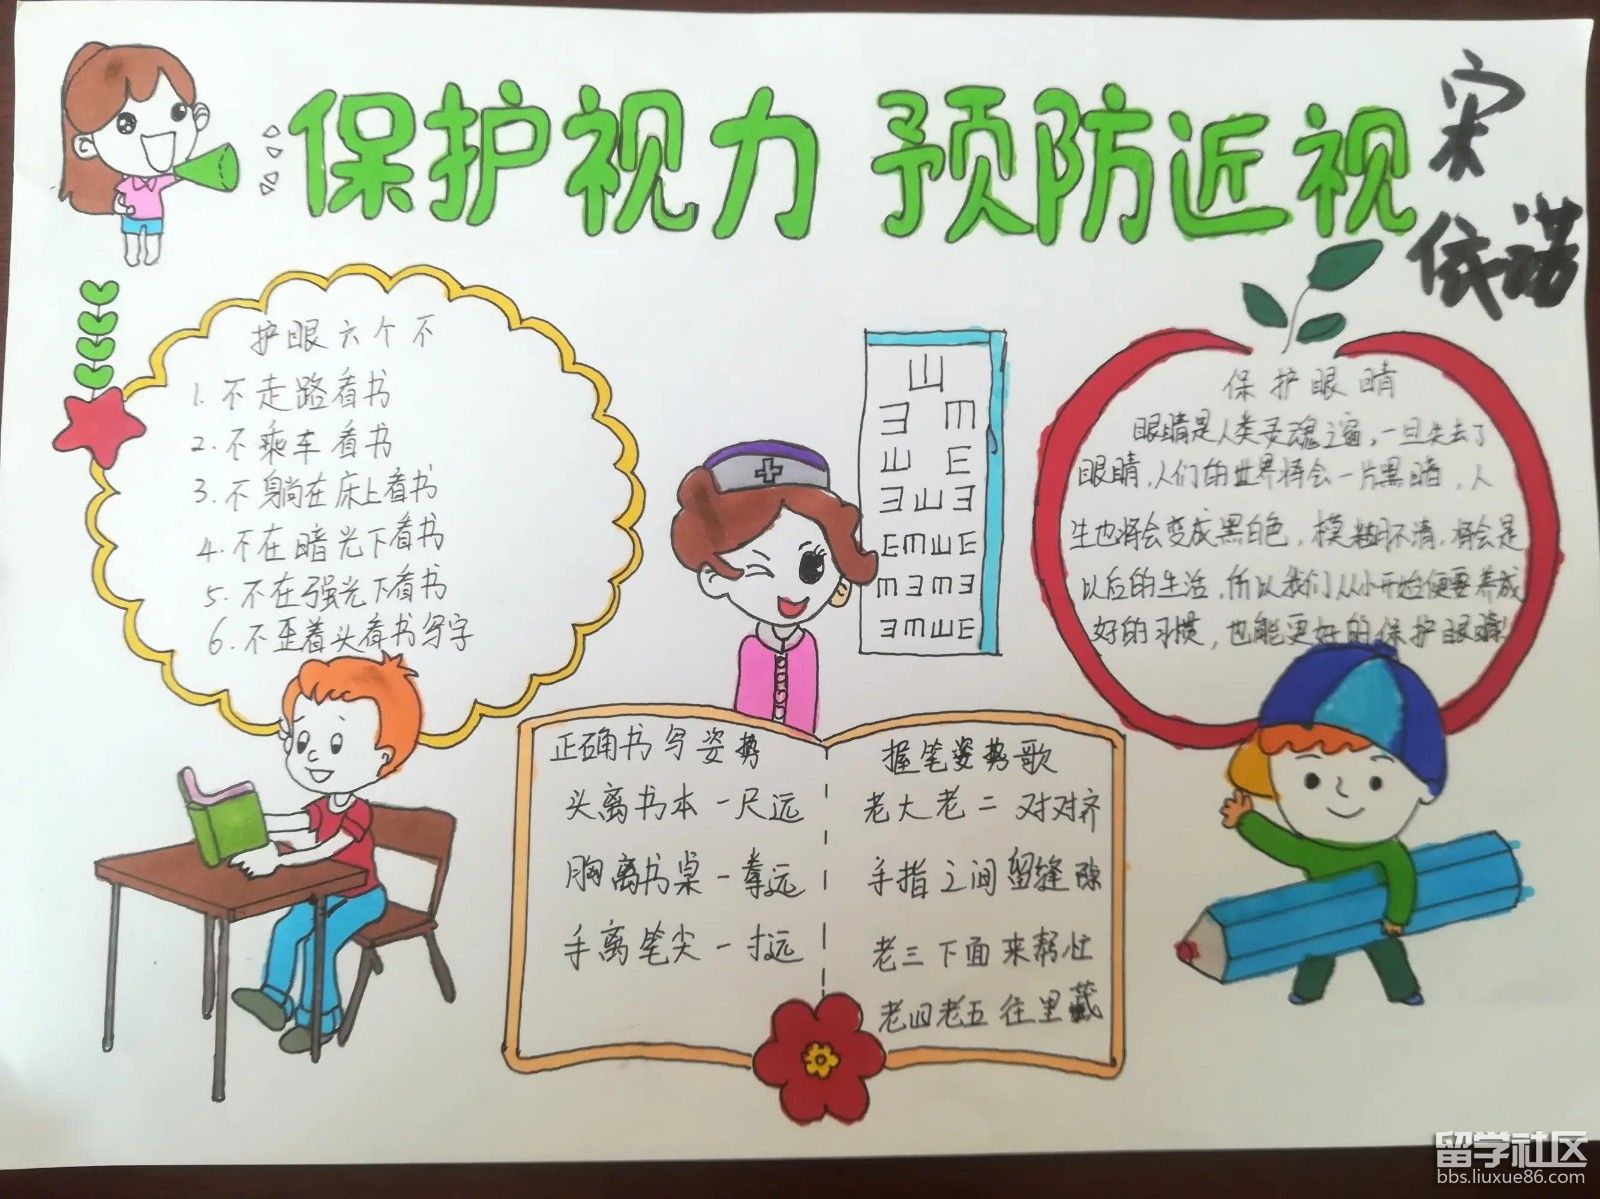 保护视力 预防近视
宋
依诺
护眼六个不
1.不走路看书
2.不乘车看书
3.不躺在床上看书
4.不在暗光下看书
5.不在强光下看书
6.不歪着头看书写字
山
ヨ m
山 E
ヨ山ヨ
EmшE
mヨmヨ
ヨmшE
保护眼睛
眼睛是人类灵魂之窗,一旦失去了
眼睛,人们的世界将会一片黑暗,人
生也将会变成黑白色,模糊不清,将会是
以后的生活,所以我们从小开始便要养成
好的习惯,也能更好的保护眼睛!
正确书写姿势
头离书本一尺远
胸离书桌一拳远
手离笔尖一寸远
握笔姿势歌
老大老二对对齐
手指之间留缝隙
老三下面来帮忙
老四老五往里藏
留学社区
bbs.liuxue86.com